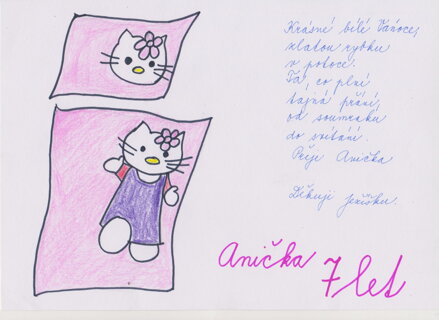 Krásné bílé Vánoce,
zlatou rybku
v potoce.
Ta, co plní
tajná přání,
od soumraku
do svítání.
Přeje Anička
Děkuji Ježíšku.
Anička 7 let